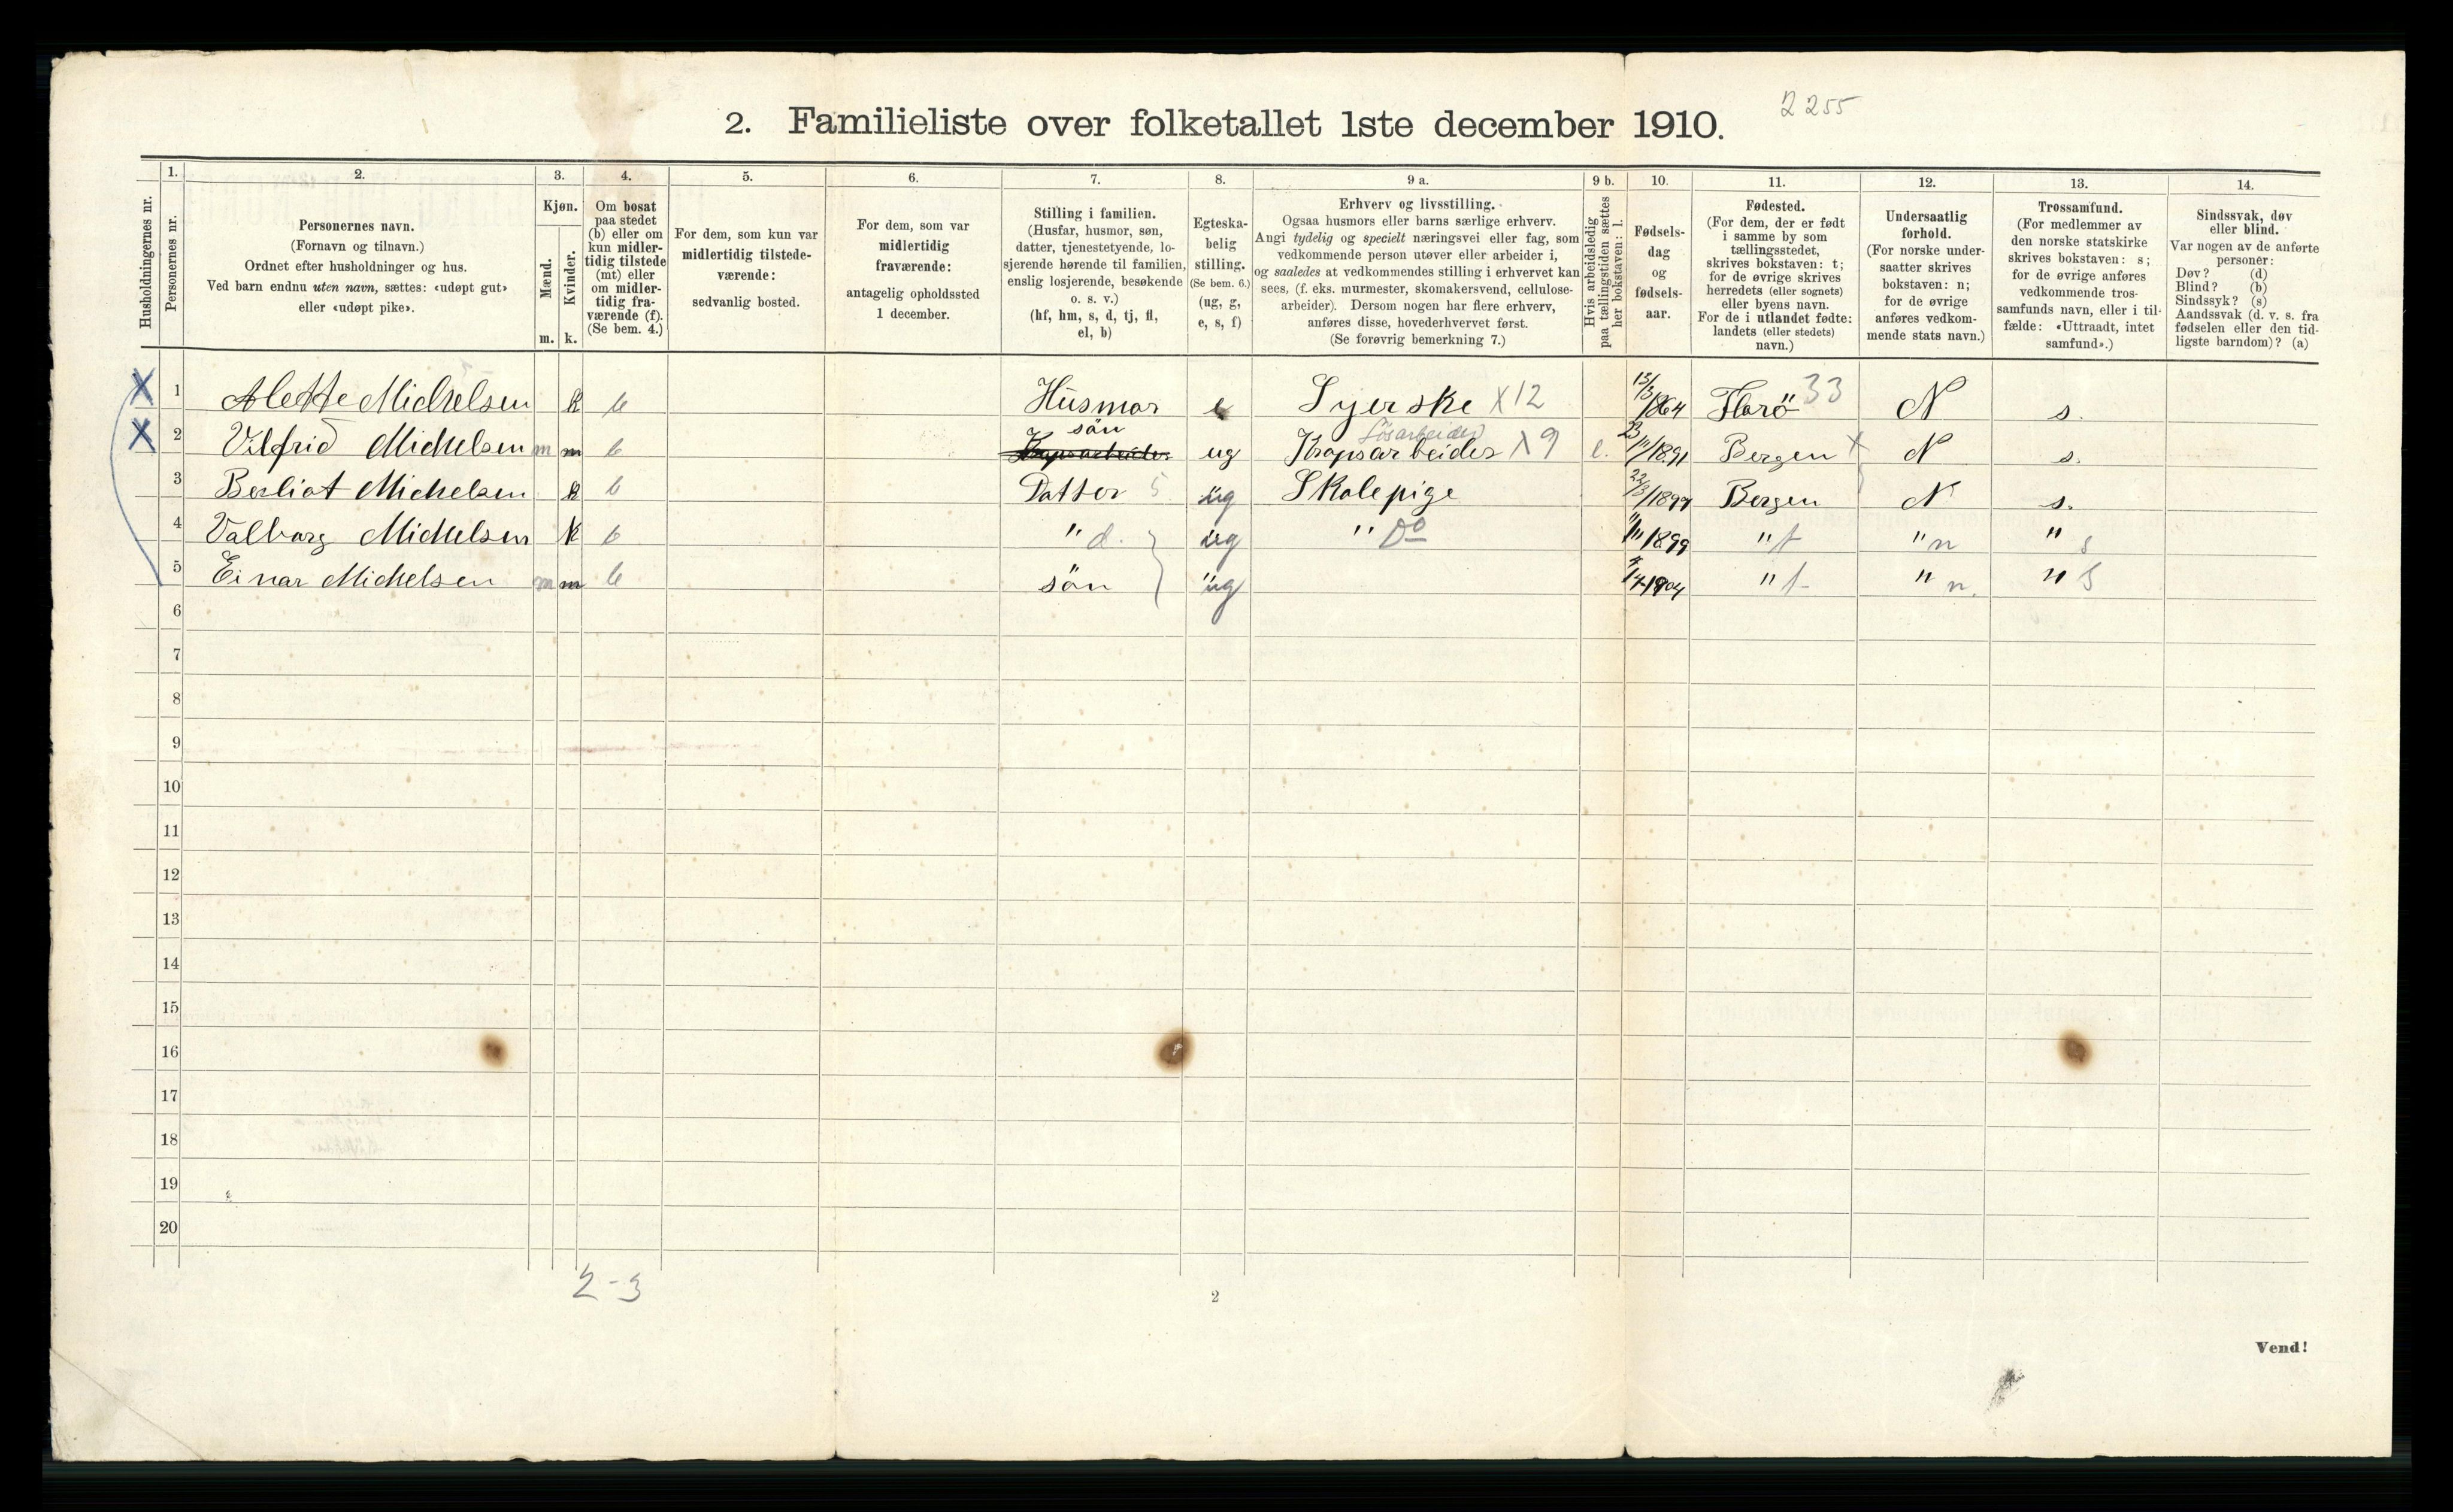 2. Familieliste over folketallet 1ste december 1910.
2255
Husholdningernes nr.
1.
Personernes nr.
2.
Personernes navn.
(Fornavn og tilnavn.)
Ordnet efter husholdninger og hus.
Ved barn endnu uten navn, sættes: «udøpt gut»
eller «udøpt pike».
3.
Kjøn.
Mænd.
m.
Kvinder.
k.
4.
Om bosat
paa stedet
(b) eller om
kun midler-
tidig tilstede
(mt) eller
om midler-
tidig fra-
værende (f).
(Se bem. 4.)
5.
For dem, som kun var
midlertidig tilstede-
værende:
sedvanlig bosted.
6.
For dem, som var
midlertidig
fraværende:
antagelig opholdssted
1 december.
7.
Stilling i familien.
(Husfar, husmor, søn,
datter, tjenestetyende, lo-
sjerende hørende til familien,
enslig losjerende, besøkende
o. s. v.)
(hf, hm, s, d, tj, fl,
el, b)
8.
Egteska-
belig
stilling.
(Se bem. 6.)
(ug, g,
e, s, f)
9 a.
Erhverv og livsstilling.
Ogsaa husmors eller barns særlige erhverv.
Angi tydelig og specielt næringsvei eller fag, som
vedkommende person utøver eller arbeider i,
og saaledes at vedkommendes stilling i erhvervet kan
sees, (f. eks. murmester, skomakersvend, cellulose-
arbeider). Dersom nogen har flere erhverv,
anføres disse, hovederhvervet først.
(Se forøvrig bemerkning 7.)
9 b.
Hvis arbeidsledig
paa tællingstiden sættes
her bokstaven: l.
10.
Fødsels-
dag
og
fødsels-
aar.
11.
Fødested.
(For dem, der er født
i samme by som
tællingsstedet,
skrives bokstaven: t;
for de øvrige skrives
herredets (eller sognets)
eller byens navn.
For de i utlandet fødte:
landets (eller stedets)
navn.)
12.
Undersaatlig
forhold.
(For norske under-
saatter skrives
bokstaven: n;
for de øvrige
anføres vedkom-
mende stats navn.)
13.
Trossamfund.
(For medlemmer av
den norske statskirke
skrives bokstaven: s;
for de øvrige anføres
vedkommende tros-
samfunds navn, eller i til-
fælde: «Uttraadt, intet
samfund».)
14.
Sindssvak, døv
eller blind.
Var nogen av de anførte
personer:
Døv? (d)
Blind? (b)
Sindssyk? (s)
Aandssvak (d. v. s. fra
fødselen eller den tid-
ligste barndom)? (a)
X 1 Alette Michelsen k b Husmor e Syerske X12 13/3 1864 Florö 33 N s.
X 2 Vilfrid Michelsen m m b sön ug Kropsarbeider Lösarbeider X9 l. 23/11 1891 Bergen X N s.
3 Berliot Michelsen k b Datter 5 ug Skolepige 22/3 1897 Bergen N s.
4 Valborg Michelsen k b " d. ug " Do 1899 " t " n " s
5 Einar Michelsen m m b sön ug 1904 " t " n. " s
6
7
8
9
10
11
12
13
14
15
16
17
18
19
20
2-3
2
Vend!